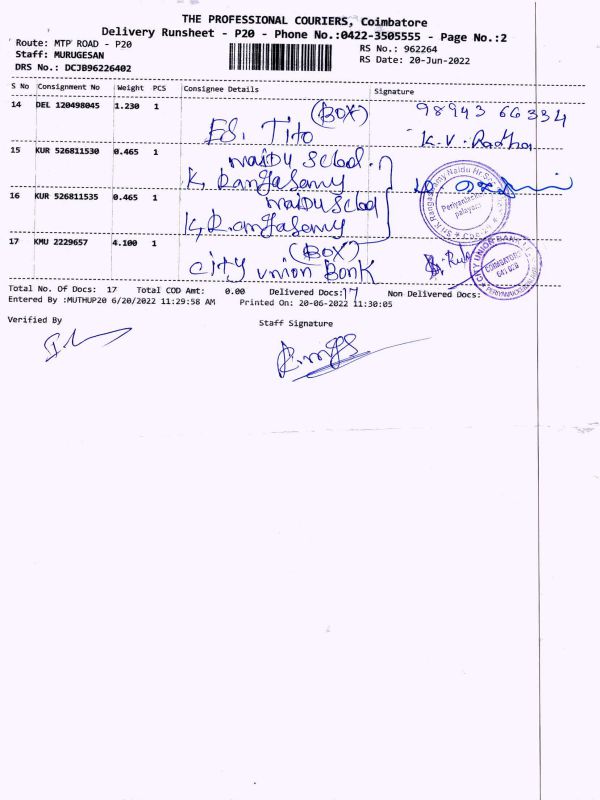 THE PROFESSIONAL COURIERS, Coimbatore
Delivery Runsheet - P20 - Phone No.:0422-3505555 - Page No.:2
Route: MTP ROAD - P20
RS No.: 962264
Staff: MURUGESAN
RS Date: 20-Jun-2022
DRS No.: DCJB96226402
S No Consignment No Weight PCS Consignee Details Signature
14 DEL 120498045 1.230 1 (BOX) 98943 66334
ES. Tito K.V. Radha
15 KUR 526811530 0.465 1 naidu school.
K. Rangasamy
16 KUR 526811535 0.465 1 naidu school
K. Rangasamy
Periyanaicken
palayam
17 KMU 2229657 4.100 1 (BOX)
City union Bank
CITY UNION BANK LTD
COIMBATORE
641 020
Total No. Of Docs: 17 Total COD Amt: 0.00 Delivered Docs:17 Non Delivered Docs:
Entered By :MUTHUP20 6/20/2022 11:29:58 AM Printed On: 20-06-2022 11:30:05
Verified By
Staff Signature